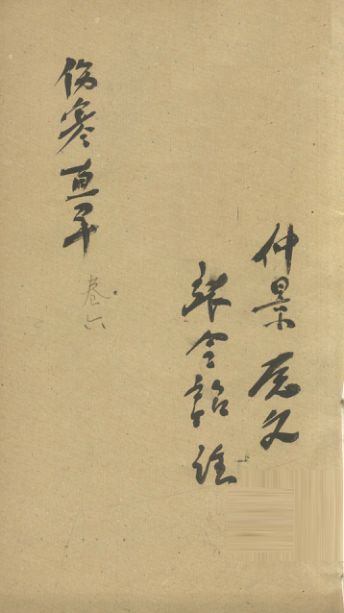 仲景原文
張令韶註
伤寒直解
卷六